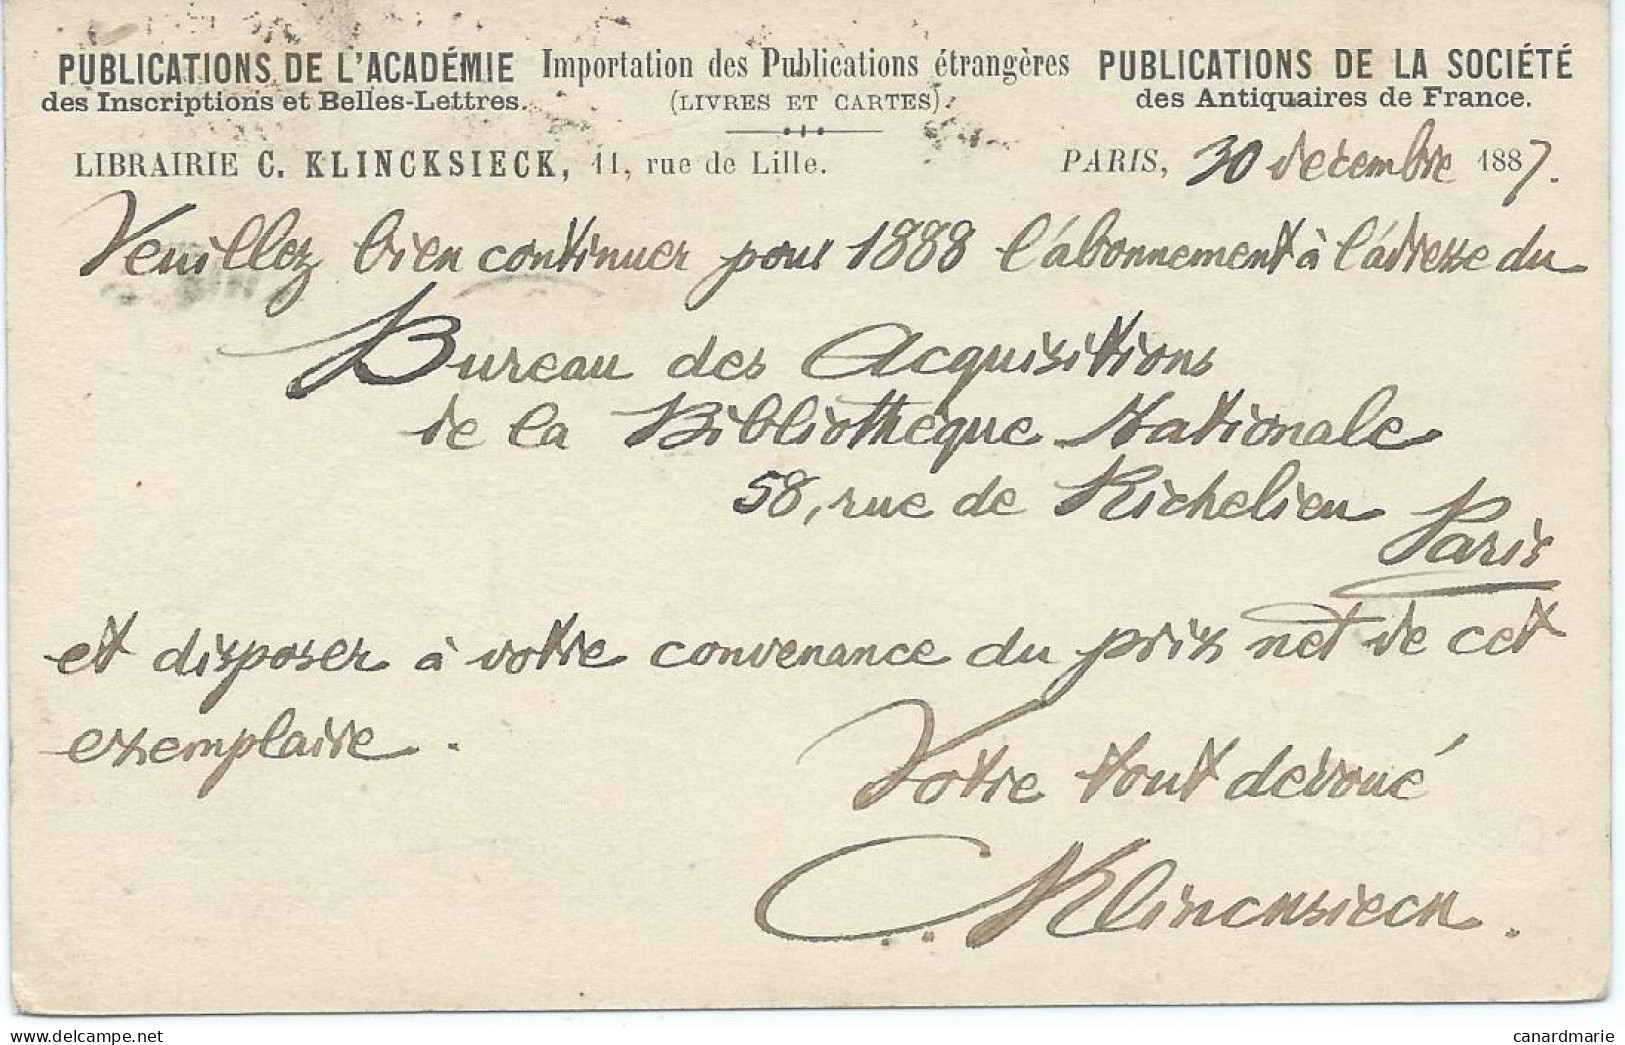 PUBLICATIONS DE L'ACADÉMIE Importation des Publications étrangères PUBLICATIONS DE LA SOCIÉTÉ
des Inscriptions et Belles-Lettres. (LIVRES ET CARTES). des Antiquaires de France.
LIBRAIRIE C. KLINCKSIECK, 11, rue de Lille. PARIS, 30 décembre 1887.
Veuillez bien continuer pour 1888 l'abonnement à l'adresse du
Bureau des Acquisitions
de la Bibliothèque Nationale
58, rue de Richelieu
Paris
et disposer à votre convenance du prix net de cet
exemplaire.
Votre tout dévoué
C. Klincksieck.
www.delcampe.net canardmarie